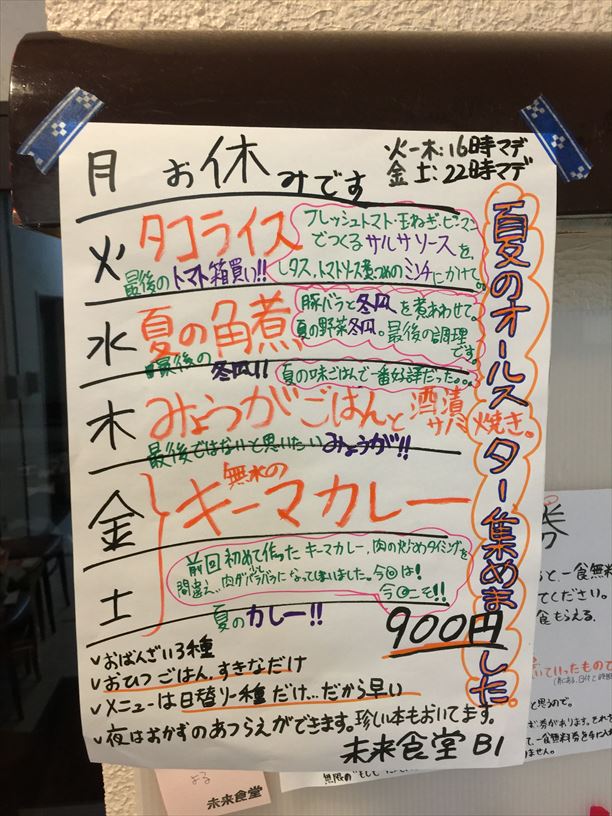 月 お休みです
火ー木:16時マデ
金 土:22時マデ
夏のオールスター集めました。
火 タコライス
最後のトマト箱買い!!
フレッシュトマト・玉ねぎ・ピーマン
でつくるサルサソースを、
レタス、トマトソース煮つめのミンチにかけて。
水 夏の角煮
最後の冬瓜!!
豚バラと冬瓜を煮あわせて。
夏の野菜冬瓜。最後の調理
です。
木 みょうがごはんと酒漬サバ焼き。
夏の味ごはんで一番好評だった。。。
最後ではないと思いたいみょうが!!
金
土
無水の
キーマカレー
前回初めて作ったキーマカレー、肉の炒めタイミングを
間違え、肉がバラバラになってしまいました。今回は!
今回こそ!!
夏のカレー!!
900円
✓おばんざい3種
✓おひつごはん、すきなだけ
✓メニューは日替り一種だけ…だから早い
✓夜はおかずのあつらえができます。珍しい本もおいてます。
未来食堂 B1
券
と、一食無料
ください。
食もらえる。
いていったもので
と思うので。
未来食堂